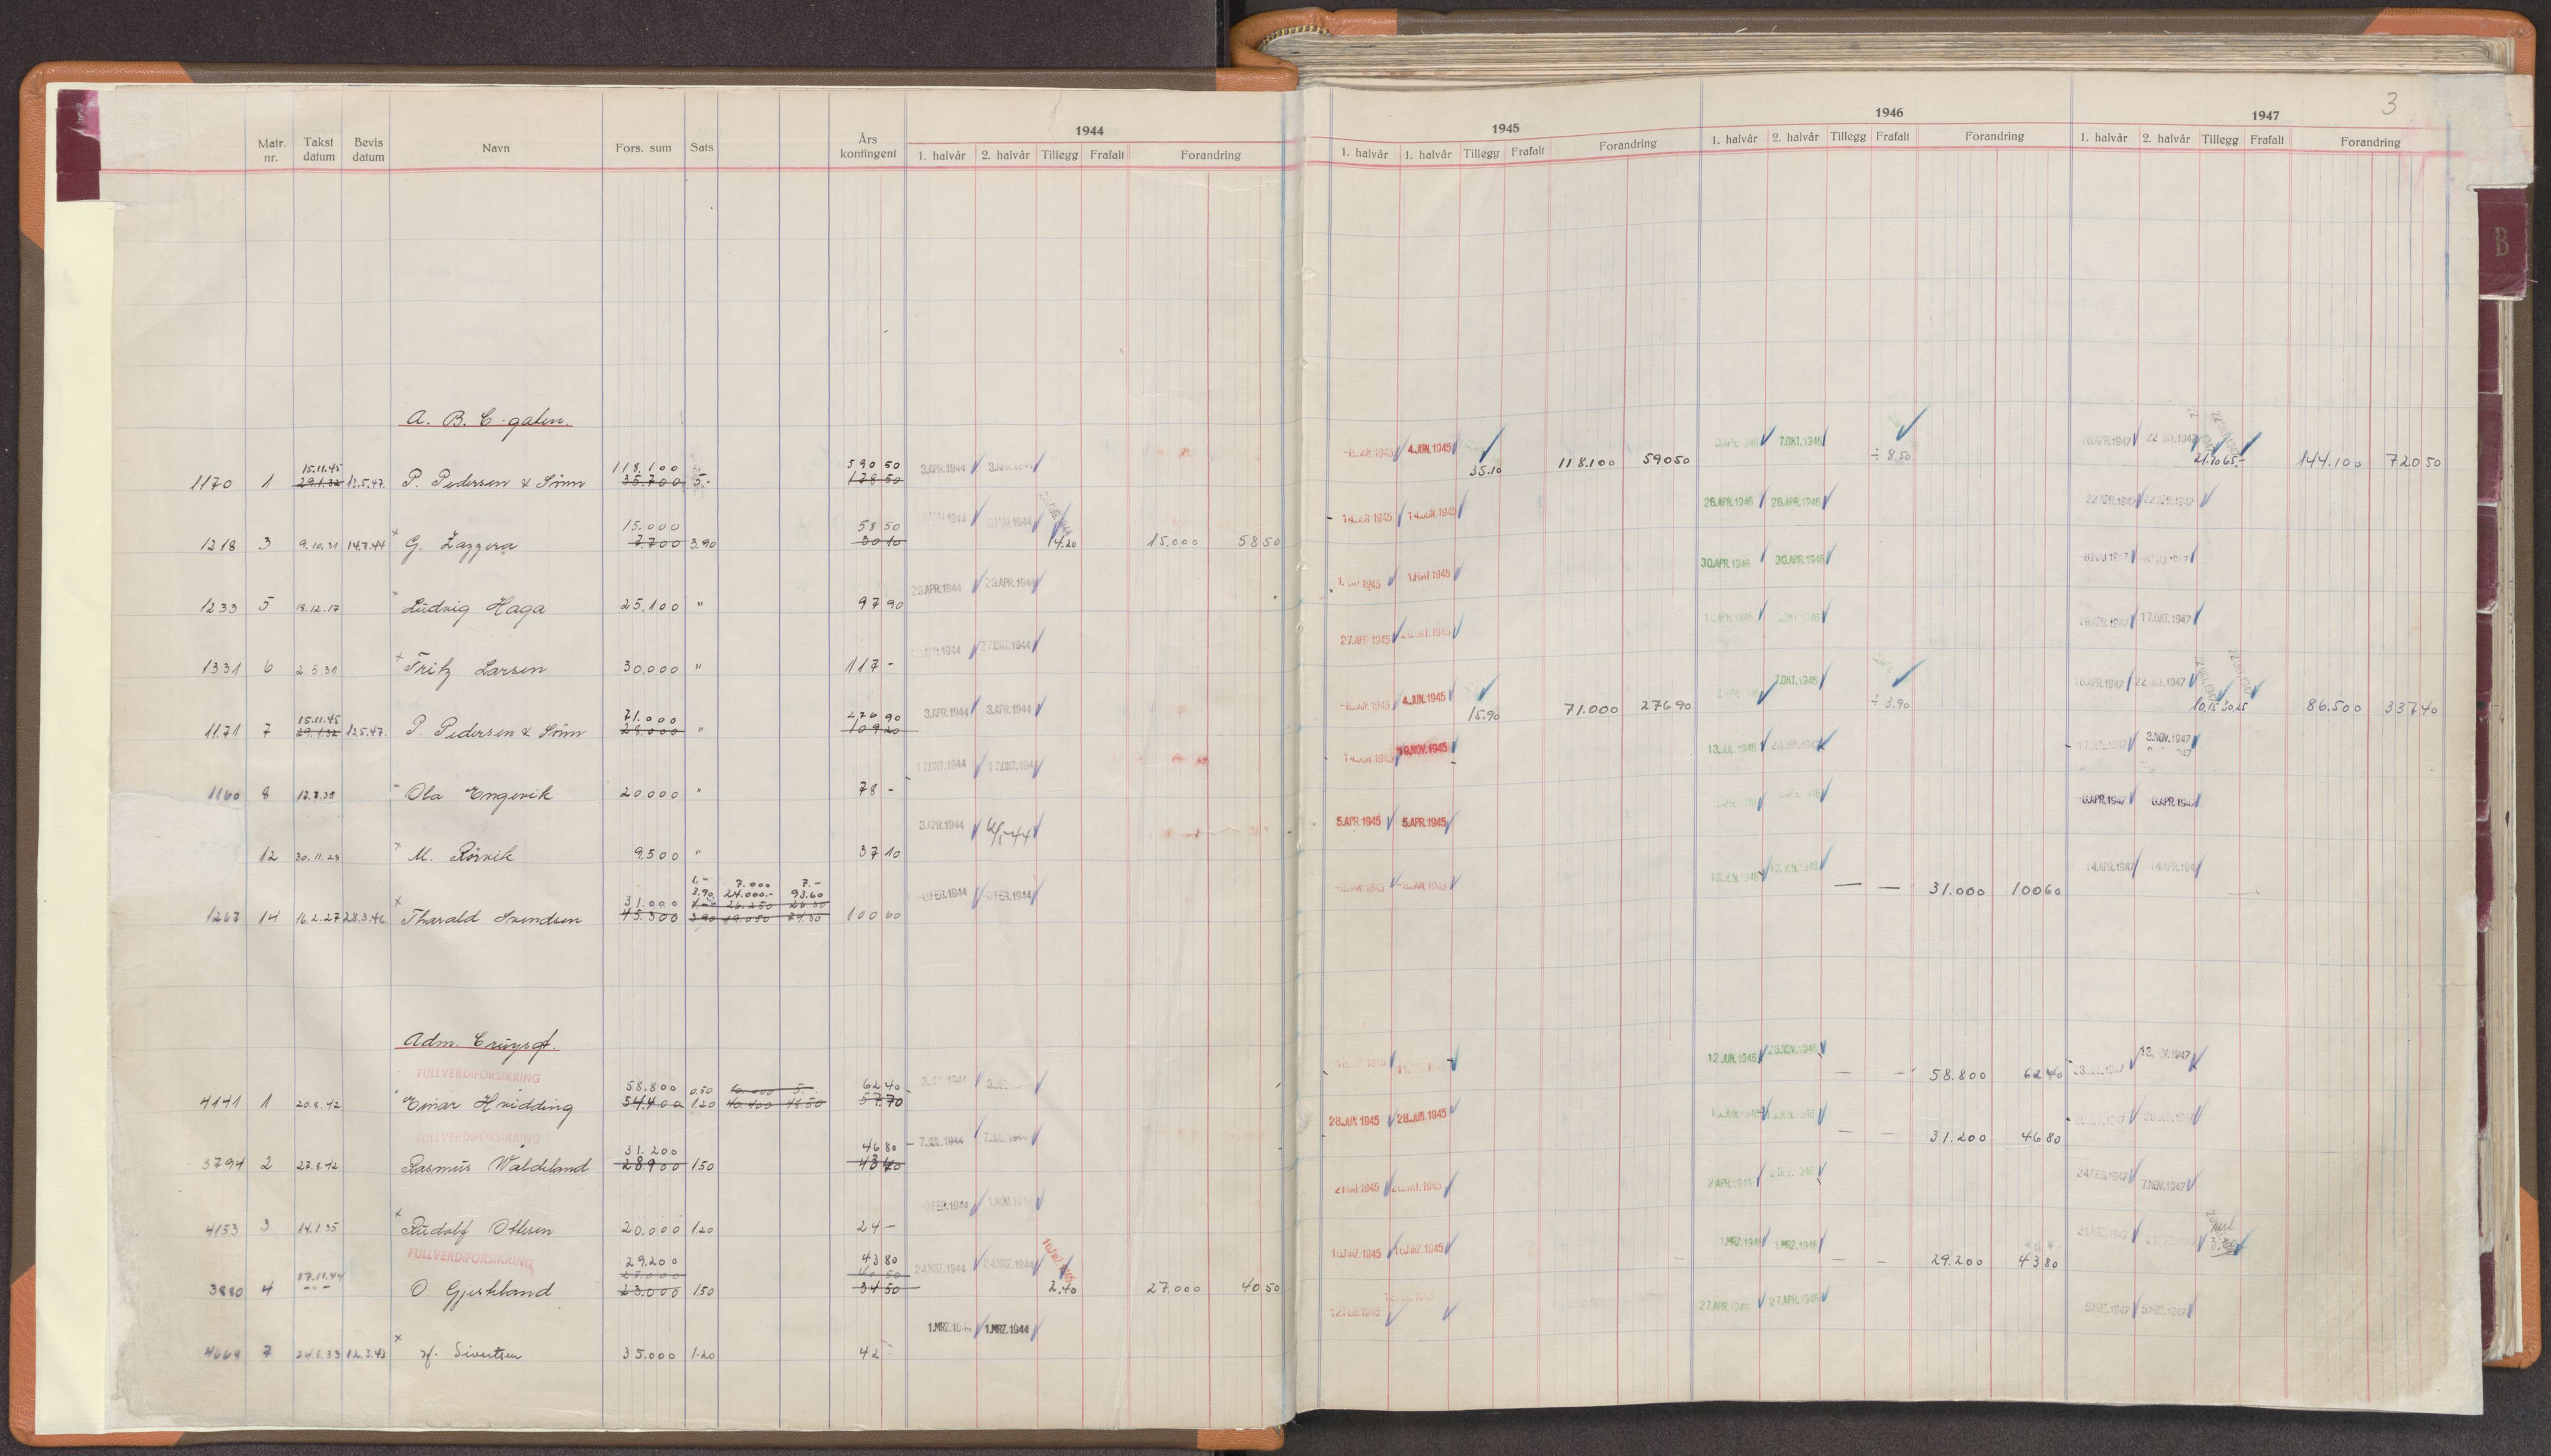 3
1944 1945 1946 1947
Matr. nr. Takst datum Bevis datum Navn Fors. sum Sats Års kontingent 1. halvår 2. halvår Tillegg Frafalt Forandring 1. halvår 1. halvår Tillegg Frafalt Forandring 1. halvår 2. halvår Tillegg Frafalt Forandring 1. halvår 2. halvår Tillegg Frafalt Forandring
B
A. B. C. gaten.
15.11.45 118.100 590 50 3.APR.1944 4.JUN.1945 7.OKT.1946
1170 1 29.1.32 13.5.47. P. Pedersen & Sönn 35.700 5.- 178 50 35.10 118.100 590 50 ÷ 8.50 21.70 65.- 144.100 720 50
15.000 58 50 14.JUN.1945 14.JUN.1945 26.APR.1946 26.APR.1946 22.APR.1947 22.APR.1947
1218 3 9.10.31 14.7.44 G. Zazzera 7.700 3.90 30 10 14.20 15.000 58 50
23.APR.1944 23.APR.1944 30.APR.1946 30.APR.1946
1233 5 18.12.17 Ludvig Haga 25.100 " 97 90
27.OKT.1944 27.APR.1945 17.OKT.1947
1331 6 2.3.31 Fritz Larsen 30.000 " 117 -
15.11.45 71.000 276 90 3.APR.1944 3.APR.1944 4.JUN.1945 7.OKT.1946
1171 7 29.1.32 13.5.47. P. Pedersen & Sönn 28.000 " 109 20 15.90 71.000 276 90 ÷ 3.90 10.15 30.25 86.500 337 40
17.OKT.1944 17.OKT.1944 19.NOV.1945 3.NOV.1947
1160 8 12.7.38 Ola Engevik 20.000 " 78 -
3.APR.1944 5.APR.1945 5.APR.1945
12 30.11.28 M. Rörvik 9.500 " 37 10
1.- 7.000 7.-
3.90 24.000.- 93.60 14.APR.1947 14.APR.1947
31.000 26.250
1267 14 16.2.27 28.3.46. Tharald Svendsen 45.300 3.90 19.050 74.30 100 60 — — 31.000 100 60
Adm. Cruysgt.
FULLVERDIFORSIKRING
58.800 0.50 5.- 62 40 12.JUN.1946 — — 58.800 62 40
4141 1 20.8.42 Einar Hvidding 54.400 1.20 40.400 48.50 57.70
FULLVERDIFORSIKRING 28.JUN.1945 28.JUN.1945
31.200 46 80 7.JUL.1944 — — 31.200 46 80
3794 2 27.8.42 Rasmus Waldeland 28.900 1.50
2.APR.1946 24.FEB.1947 7.NOV.1947
4153 3 14.1.35 Rudolf Ottesen 20.000 1.20 24 -
FULLVERDIFORSIKRING
29.200 43 80 24.MRZ.1944 24.MRZ.1944 1.MRZ.1946 1.MRZ.1946 — — 29.200 43 80
17.11.44 27.000 40 50
3880 4 O Gjeskland 23.000 1.50 34 50 2.40 27.000 40 50
1.MRZ.1944 1.MRZ.1944 27.APR.1946 27.APR.1946 5.MRZ.1947 5.MRZ.1947
4669 7 24.8.33 12.3.43 Sivertsen 35.000 1.20 42 -